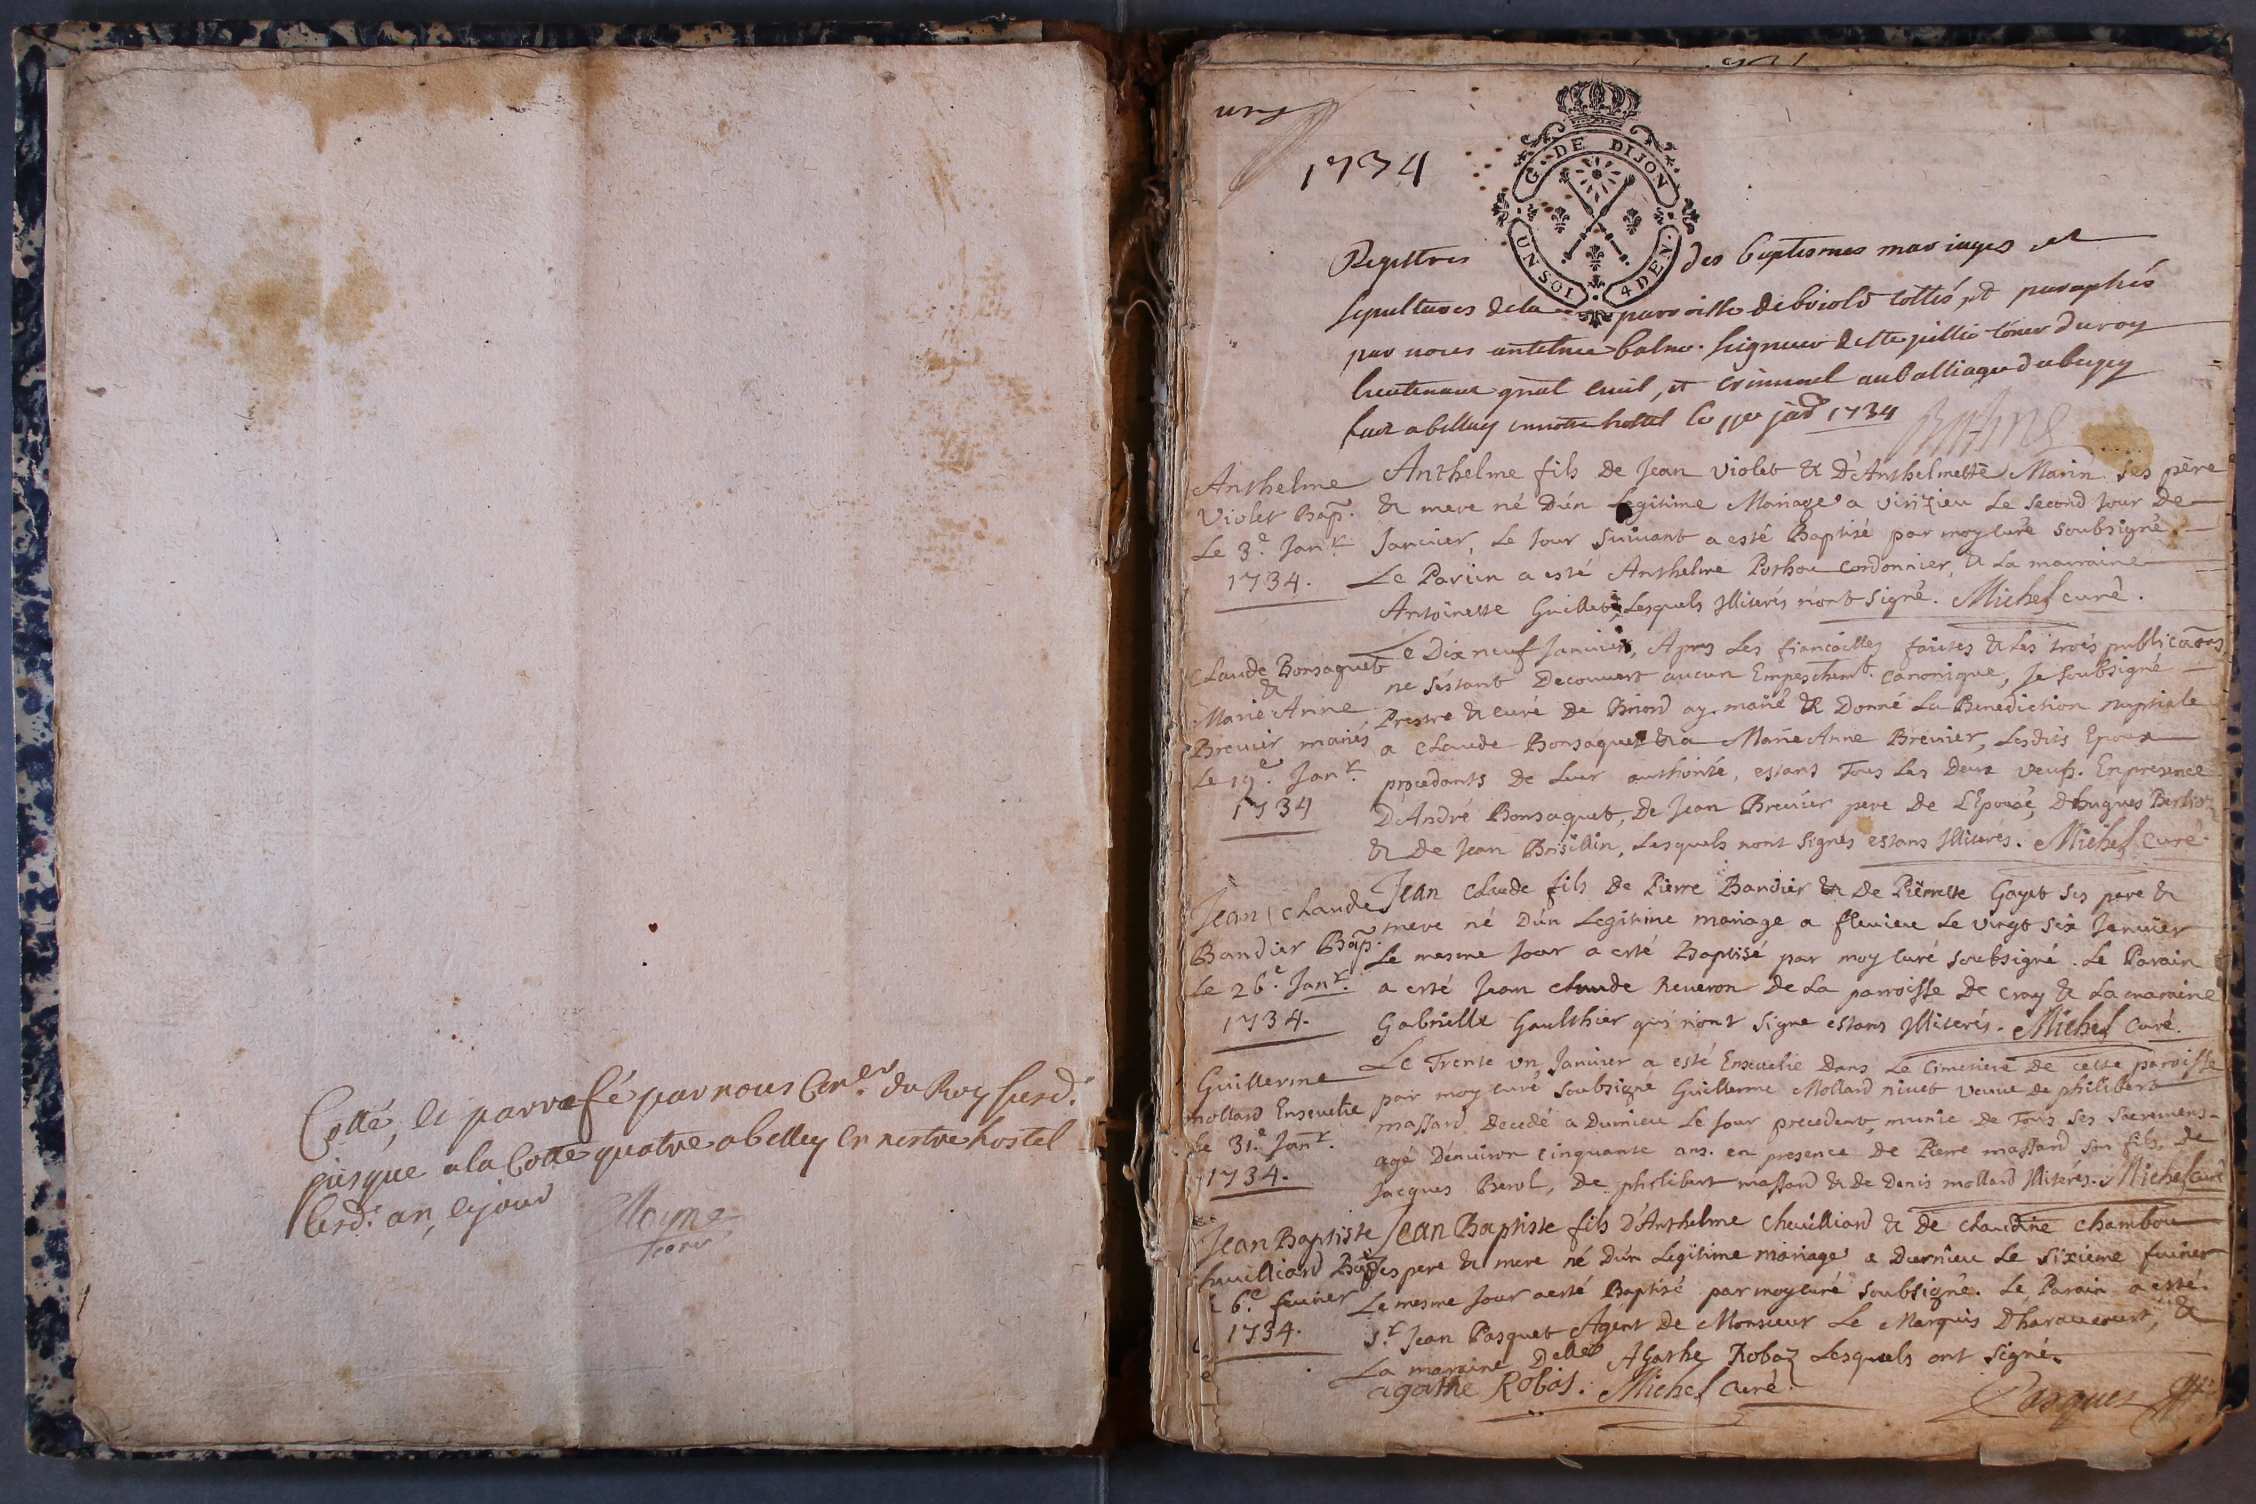 Cotté, et parrafé par nous Con.er du Roy susd.
jusque a la Cotte quatre a belley en nostre hostel
lesd. an, et jour
1734
G. DE DIJON
UN SOL 4 DEN.
Registres des baptesmes mariages et
sepultures de la parroisse de briord cottés, et paraphés
par nous antelme balme seigneur de Ste jullie coner du roy
lieutenant gnāl civil, et criminel au balliage du bugey
seant a belley en notre hostel le 1er janr 1734
Anthelme
Violet Bap.
Le 3.e Janr.
1734.
Anthelme fils de Jean Violet & D'Anthelmette Marin ses père
& mere né D'un Legitime Mariage a Virizieu Le second Jour De
Janvier, Le Jour suivant a esté Baptisé par moy curé soubsigné.
Le Parain a esté Anthelme cordonnier, & La marraine
Antoinette Guillet, Lesquels Illiterés n'ont signé. Michel curé.
Claude Bonsaquet
&
Marie Anne
Brevier mariés
Le 19.e Janr.
1734
Le Dix neuf Janvier, Apres Les fiancailles faites & Les trois publicaõns
ne s'éstant Decouvert aucun Empeschemt. canonique, Je soubsigné
Prestre & curé De Briord ay marié & Donné La Benediction nuptiale
a Claude Bonsaquet & a Marie Anne Brevier, Lesdits Epoux
procedants De Leur authorité, estans Tous Les Deux veufs. En presence
D'André Bonsaquet, De Jean Brevier pere De L'Epousé, D'hugues
& De Jean Brisillin, Lesquels n'ont signés estans Illiterés. Michel curé.
Jean Claude
Bandier Bap.
Le 26.e Janr.
1734.
Jean Claude fils De Pierre Bandier & De Pierrette Gayet ses pere &
mere né D'un Legitime mariage a flevieu Le vingt six Janvier
Le mesme Jour a esté Baptisé par moy curé soubsigné. Le Parain
a esté Jean Claude Reveron De La parroisse De cray & La maraine
Gabrielle Gaulthier qui n'ont signe estans Illiterés. Michel Curé.
Guillerme
mollard Ensevelie
Le 31.e Janr.
1734.
Le Trente un Janvier a esté Ensevelie Dans Le Cimetiere De cette paroisse
par moy curé soubsigne Guillerme Mollard nivet veuve de philibert
massard Decedé a Dumieu Le Jour precedent, munie de Tous ses sacremens
agé D'environ cinquante ans. en presence De Pierre massard son fils, De
Jacques Berol, De philibert massard & De Denis mollard Illiterés. Michel curé
Jean Baptiste
chevilliard Bap.
6.e fevrier
1734.
Jean Baptiste fils D'Anthelme chevilliard & De Claudine Chambou
ses pere & mere né D'un Legitime mariage a Dumieu Le sixieme fevrier
Le mesme Jour a esté Baptisé par moy curé soubsigné. Le Parain a esté
Sr. Jean Pasquet Agent De Monsieur Le Marquis D'haraucourt, &
La maraine Delle Agathe Robaz Lesquels ont signé.
agathe Robas. Michel Curé.
Pasquet